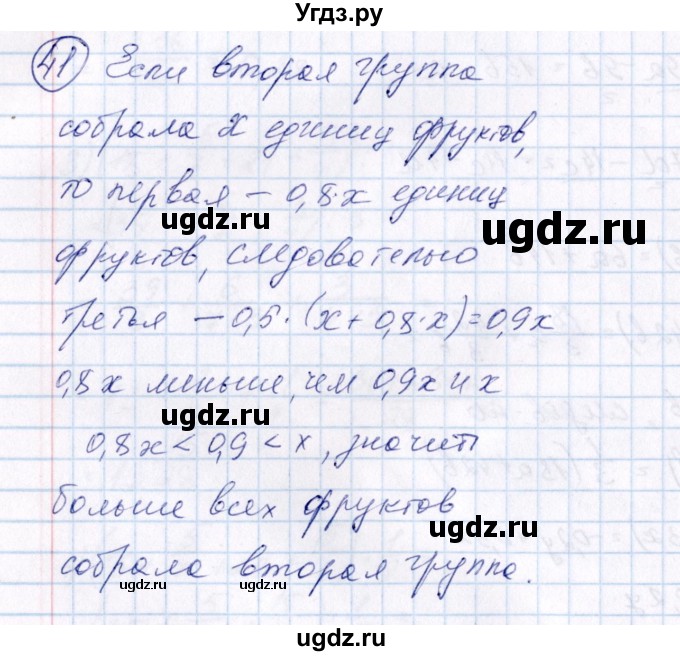 Угдз.ру
41 Если вторая группа
собрала x единиц фруктов,
то первая – 0,8·x единиц
ugdz.ru ugdz.ru
фруктов, следовательно
третья – 0,5·(x+0,8·x)=0,9x
ugdz.ru
0,8x меньше, чем 0,9x и x
ugdz.ru
0,8x < 0,9 < x, значит
больше всех фруктов
ugdz.ru
собрала вторая группа.
ugdz.ru ugdz.ru
ugdz.ru